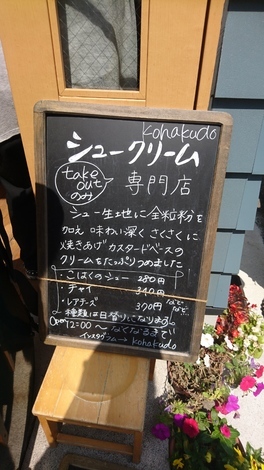 kohakudo
シュークリーム
take out のみ
専門店
シュー生地に全粒粉を
加え 味わい深く さくさくに
焼きあげ カスタードベースの
クリームをたっぷりつめました
・こはくのシュー 280円
・チャイ 340円
・レアチーズ 370円 などなど…
種類は日替りになります
Open 12:00〜なくなるまで
インスタグラム→kohakudo